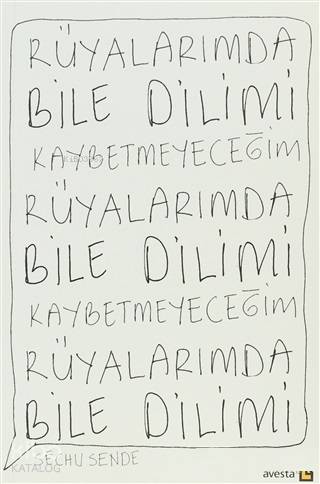 RÜYALARIMDA
BİLE DİLİMİ
KAYBETMEYECEĞİM
RÜYALARIMDA
BİLE DİLİMİ
KAYBETMEYECEĞİM
RÜYALARIMDA
BİLE DİLİMİ
SECHU SENDE
KATALOG
avesta